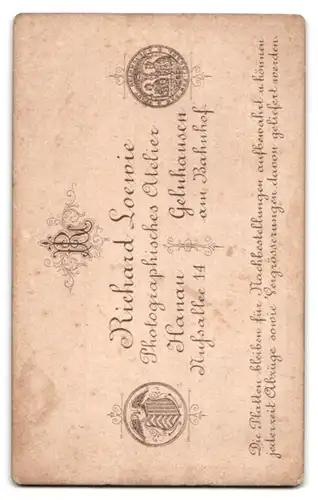 RL
Richard Loewie
Photographisches Atelier
Hanau Gelnhausen
Nufsallee 14 am Bahnhof.
Die Platten bleiben für Nachbestellungen aufbewahrt u. können
jederzeit Abzüge sowie Vergrösserungen davon geliefert werden.